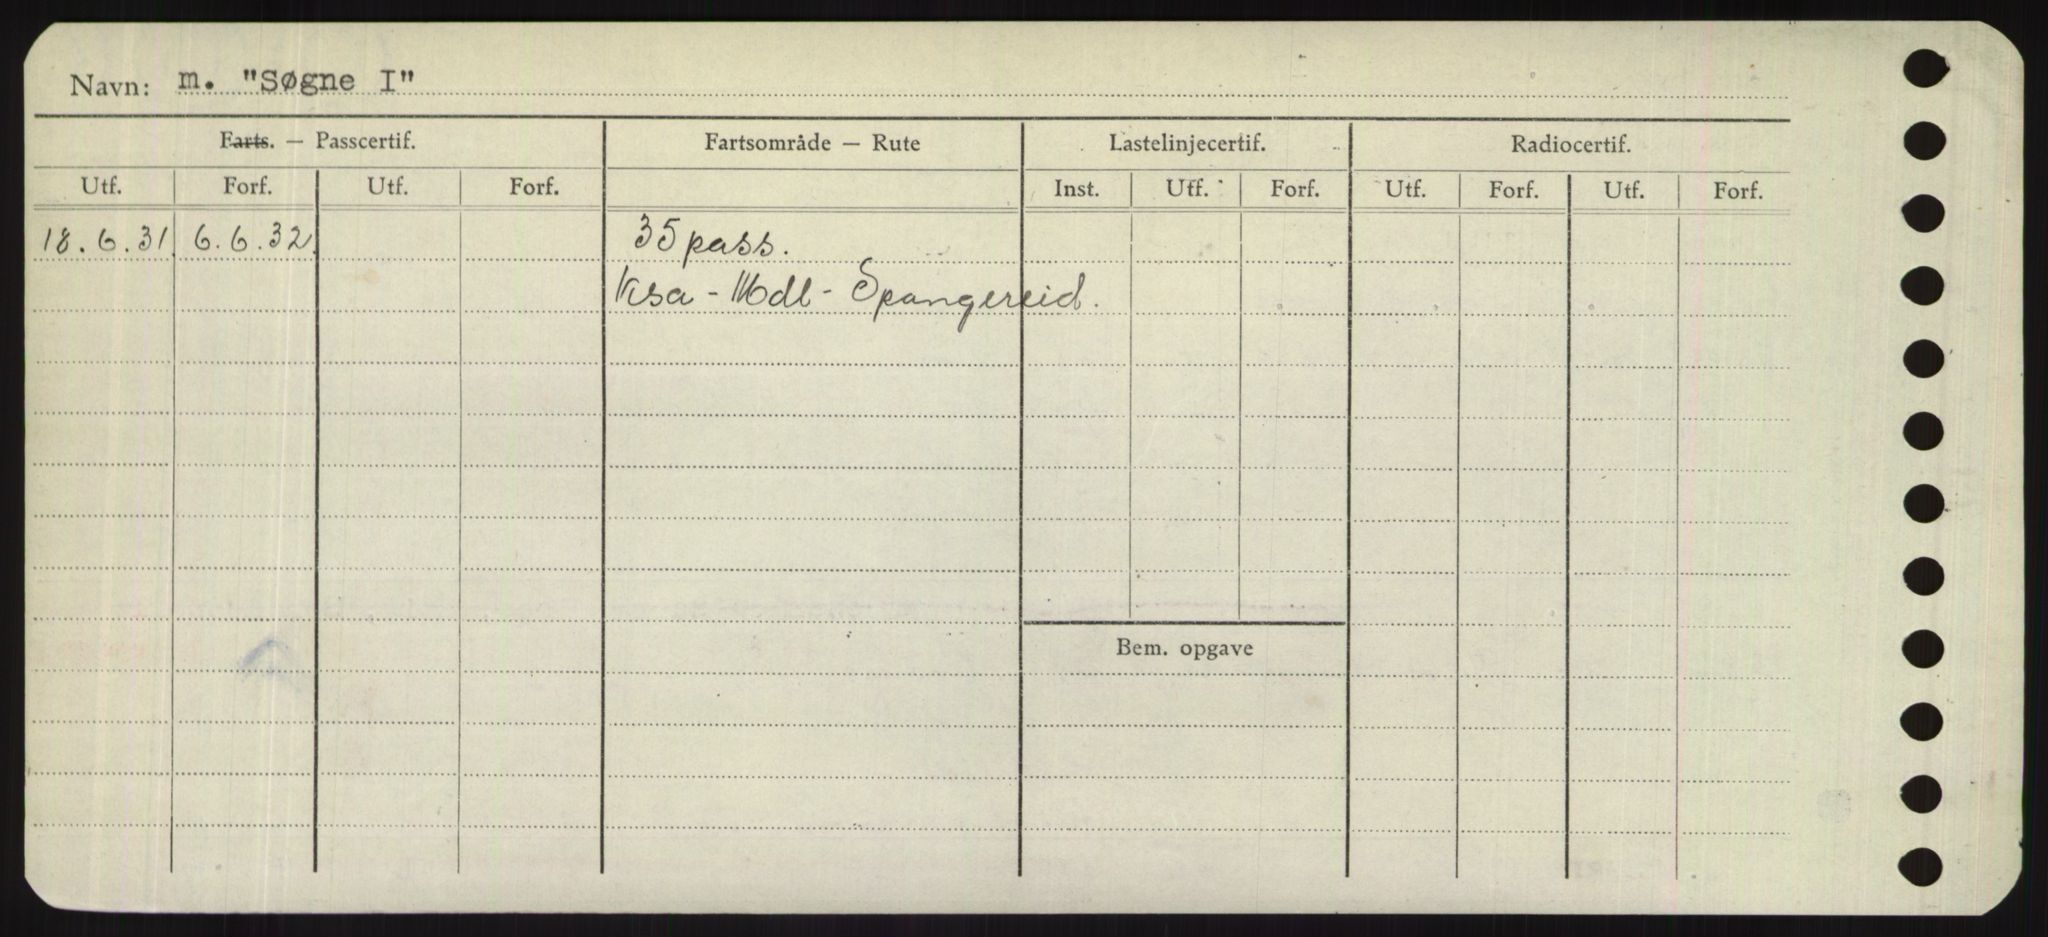 Navn: m. "Søgne I"
Farts. — Passcertif. Fartsområde — Rute Lastelinjecertif. Radiocertif.
Utf. Forf. Utf. Forf. Inst. Utf. Forf. Utf. Forf. Utf. Forf.
18.6.31. 6.6.32. 35 pass.
Ksa - Mdl - Spangereid.
Bem. opgave